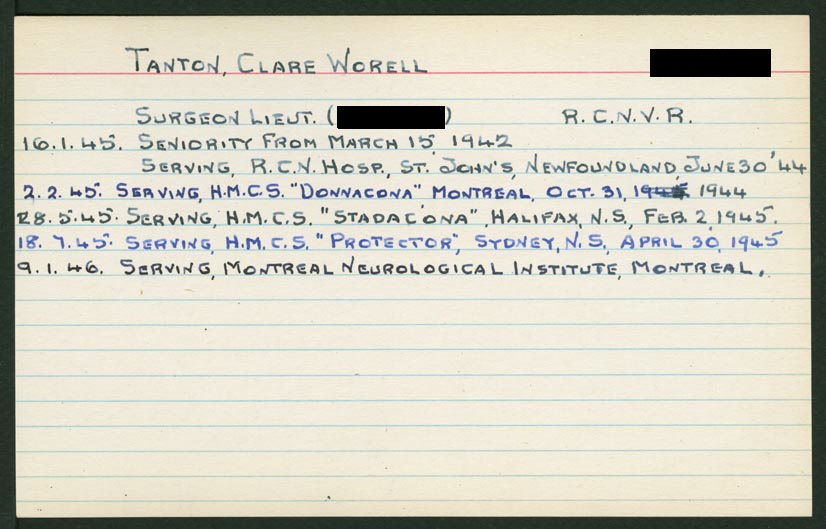 TANTON, CLARE WORELL
SURGEON LIEUT. ( ) R.C.N.V.R.
16.1.45. SENIORITY FROM MARCH 15, 1942
SERVING, R.C.N. HOSP., ST. JOHN'S, NEWFOUNDLAND, JUNE 30 '44
2.2.45. SERVING, H.M.C.S. "DONNACONA" MONTREAL, OCT. 31, 1944
28.5.45. SERVING, H.M.C.S. "STADACONA", HALIFAX, N.S., FEB. 2, 1945.
18.7.45. SERVING, H.M.C.S. "PROTECTOR", SYDNEY, N.S, APRIL 30, 1945
9.1.46. SERVING, MONTREAL NEUROLOGICAL INSTITUTE, MONTREAL.